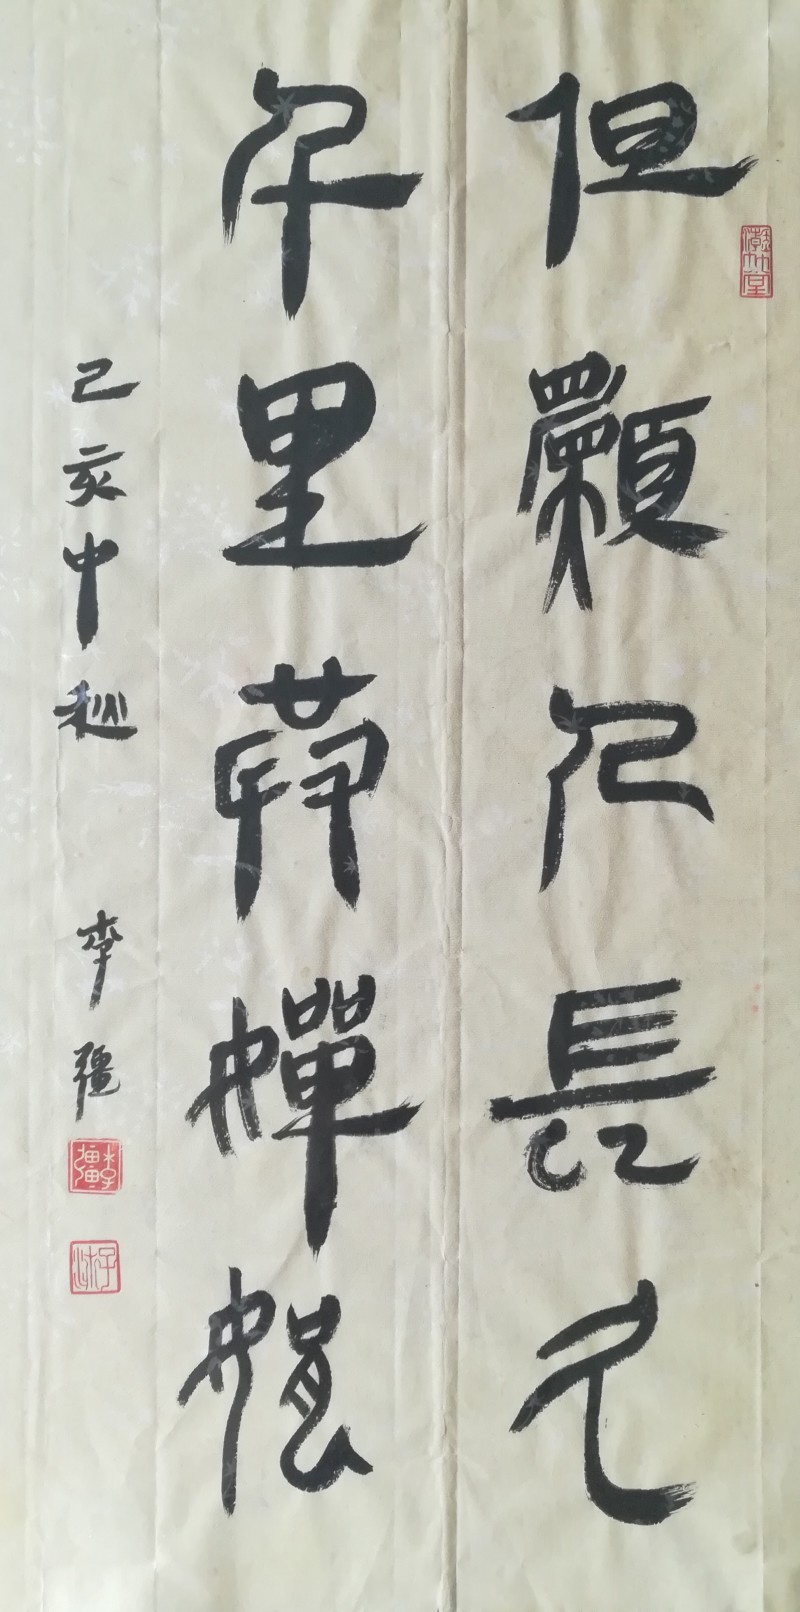 但願人長久
千里共嬋娟
己亥中秋 李彊